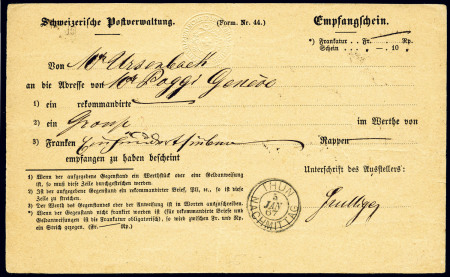 Schweizerische Postverwaltung. (Form. Nr. 44.) Empfangschein.
*) Frankatur .. Fr. Rp.
Schein .. — .. 10 „
Von Mr Ursenbach
an die Adresse von Mr Poggi Genève
1) ein rekommandirte
2) ein Group im Werthe von
3) Franken Rappen
empfangen zu haben bescheint
Unterschrift des Ausstellers:
1) Wenn der aufgegebene Gegenstand ein Werthstück oder eine Geldanweisung
ist, so muß diese Zeile durchstrichen werden.
2) Ist der aufgegebene Gegenstand ein rekommandirter Brief, so ist diese
Zeile zu streichen.
3) Der Werth des Gegenstandes oder der Anweisung ist in Worten auszuschreiben.
*) Wenn der Gegenstand nicht frankirt worden ist (für rekommandirte Briefe und
Geldanweisungen ist die Frankatur obligatorisch), so wird zwischen Fr. und Rp.
ein Strich gezogen. (Fr. Rp.)
THUN
5
JAN
67
NACHMITTAG